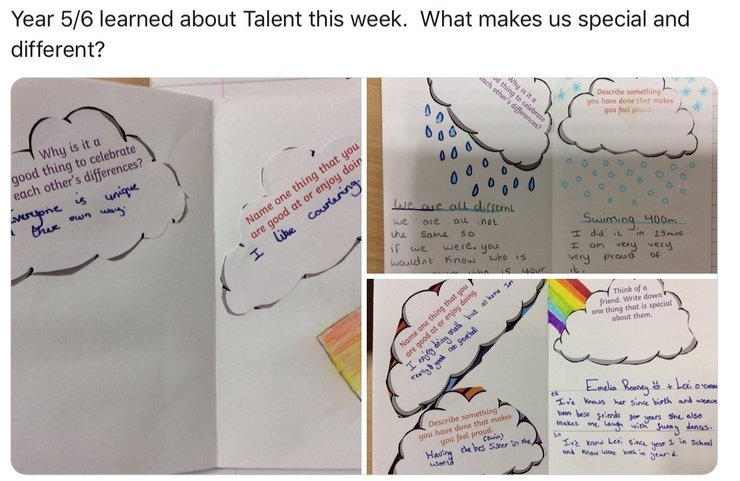 Year 5/6 learned about Talent this week.  What makes us special and
different?
Why is it a
good thing to celebrate
each other's differences?
everyone is unique
own way
Name one thing that you
are good at or enjoy doin
I like
Why is it a
od thing to celebrate
each other's differences?
We are all differnt
we are all not
the same so
if we were. you
wouldnt know who is
who is your
Describe something
you have done that makes
you feel proud.
Swimming 400m
I did it in 25mins
I am very very
very proud of
it.
Name one thing that you
are good at or enjoy doing.
I enjoy doing math but at home Im
really good at
Describe something
you have done that makes
you feel proud.
(twin)
Having the bes Sister in the
world
Think of a
friend. Write down
one thing that is special
about them.
Emelia Rooney + Lexi
Ive known her since birth and weave
been best friends for years she also
makes me laugh with funny dances.
Ive know Lexi since year 1 in School
and know were both in year 6.